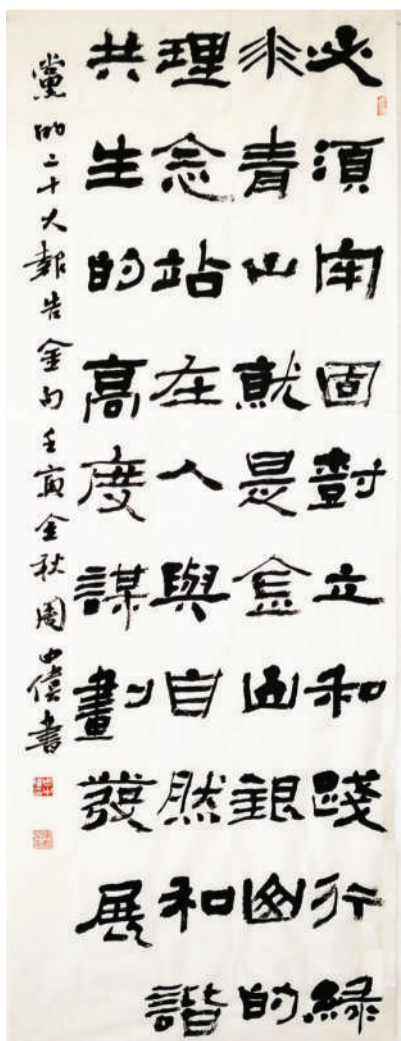 必須牢固尌立和踐行綠
水青山就是金山銀山的
理念站在人與自然和諧
共生的高度謀劃發展
黨的二十大報告金句壬寅金秋周書